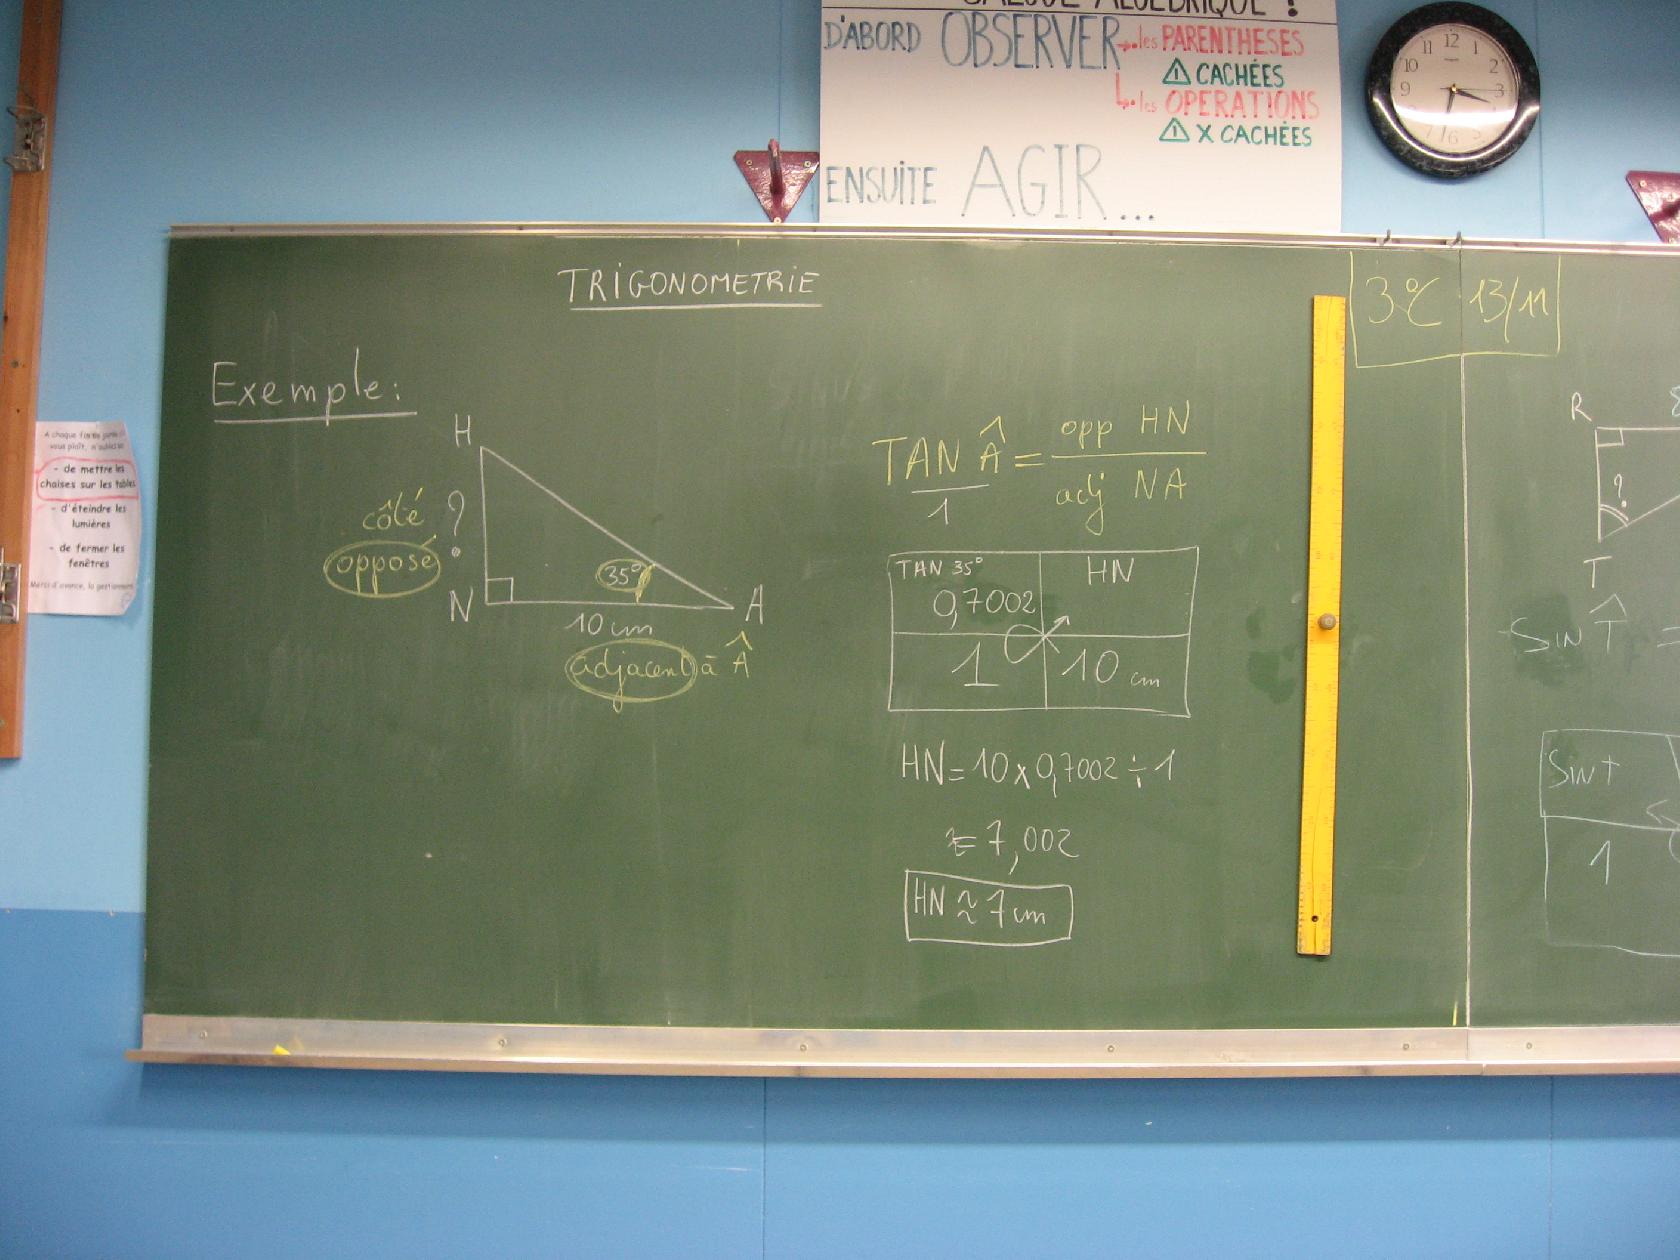 CALCUL ALGÉBRIQUE !
D'ABORD OBSERVER → les PARENTHESES
⚠ CACHÉES
↳ les OPERATIONS
⚠ X CACHÉES
ENSUITE AGIR...
12
11 1
10 2
9 3
7 6
TRIGONOMETRIE
3°C 13/11
Exemple:
H
côté ?
opposé
35°
N A
10 cm
adjacent à Â
TAN Â = opp HN
1 adj NA
TAN 35° HN
0,7002
1 10 cm
HN = 10 x 0,7002 ÷ 1
≈ 7,002
HN ≈ 7 cm
R
?
T
Sin T̂ =
Sin T
1
A chaque fin de
vous plaît, n'oubliez
- de mettre les
chaises sur les tables
- d'éteindre les
lumières
- de fermer les
fenêtres
Merci d'avance, la gestionnaire